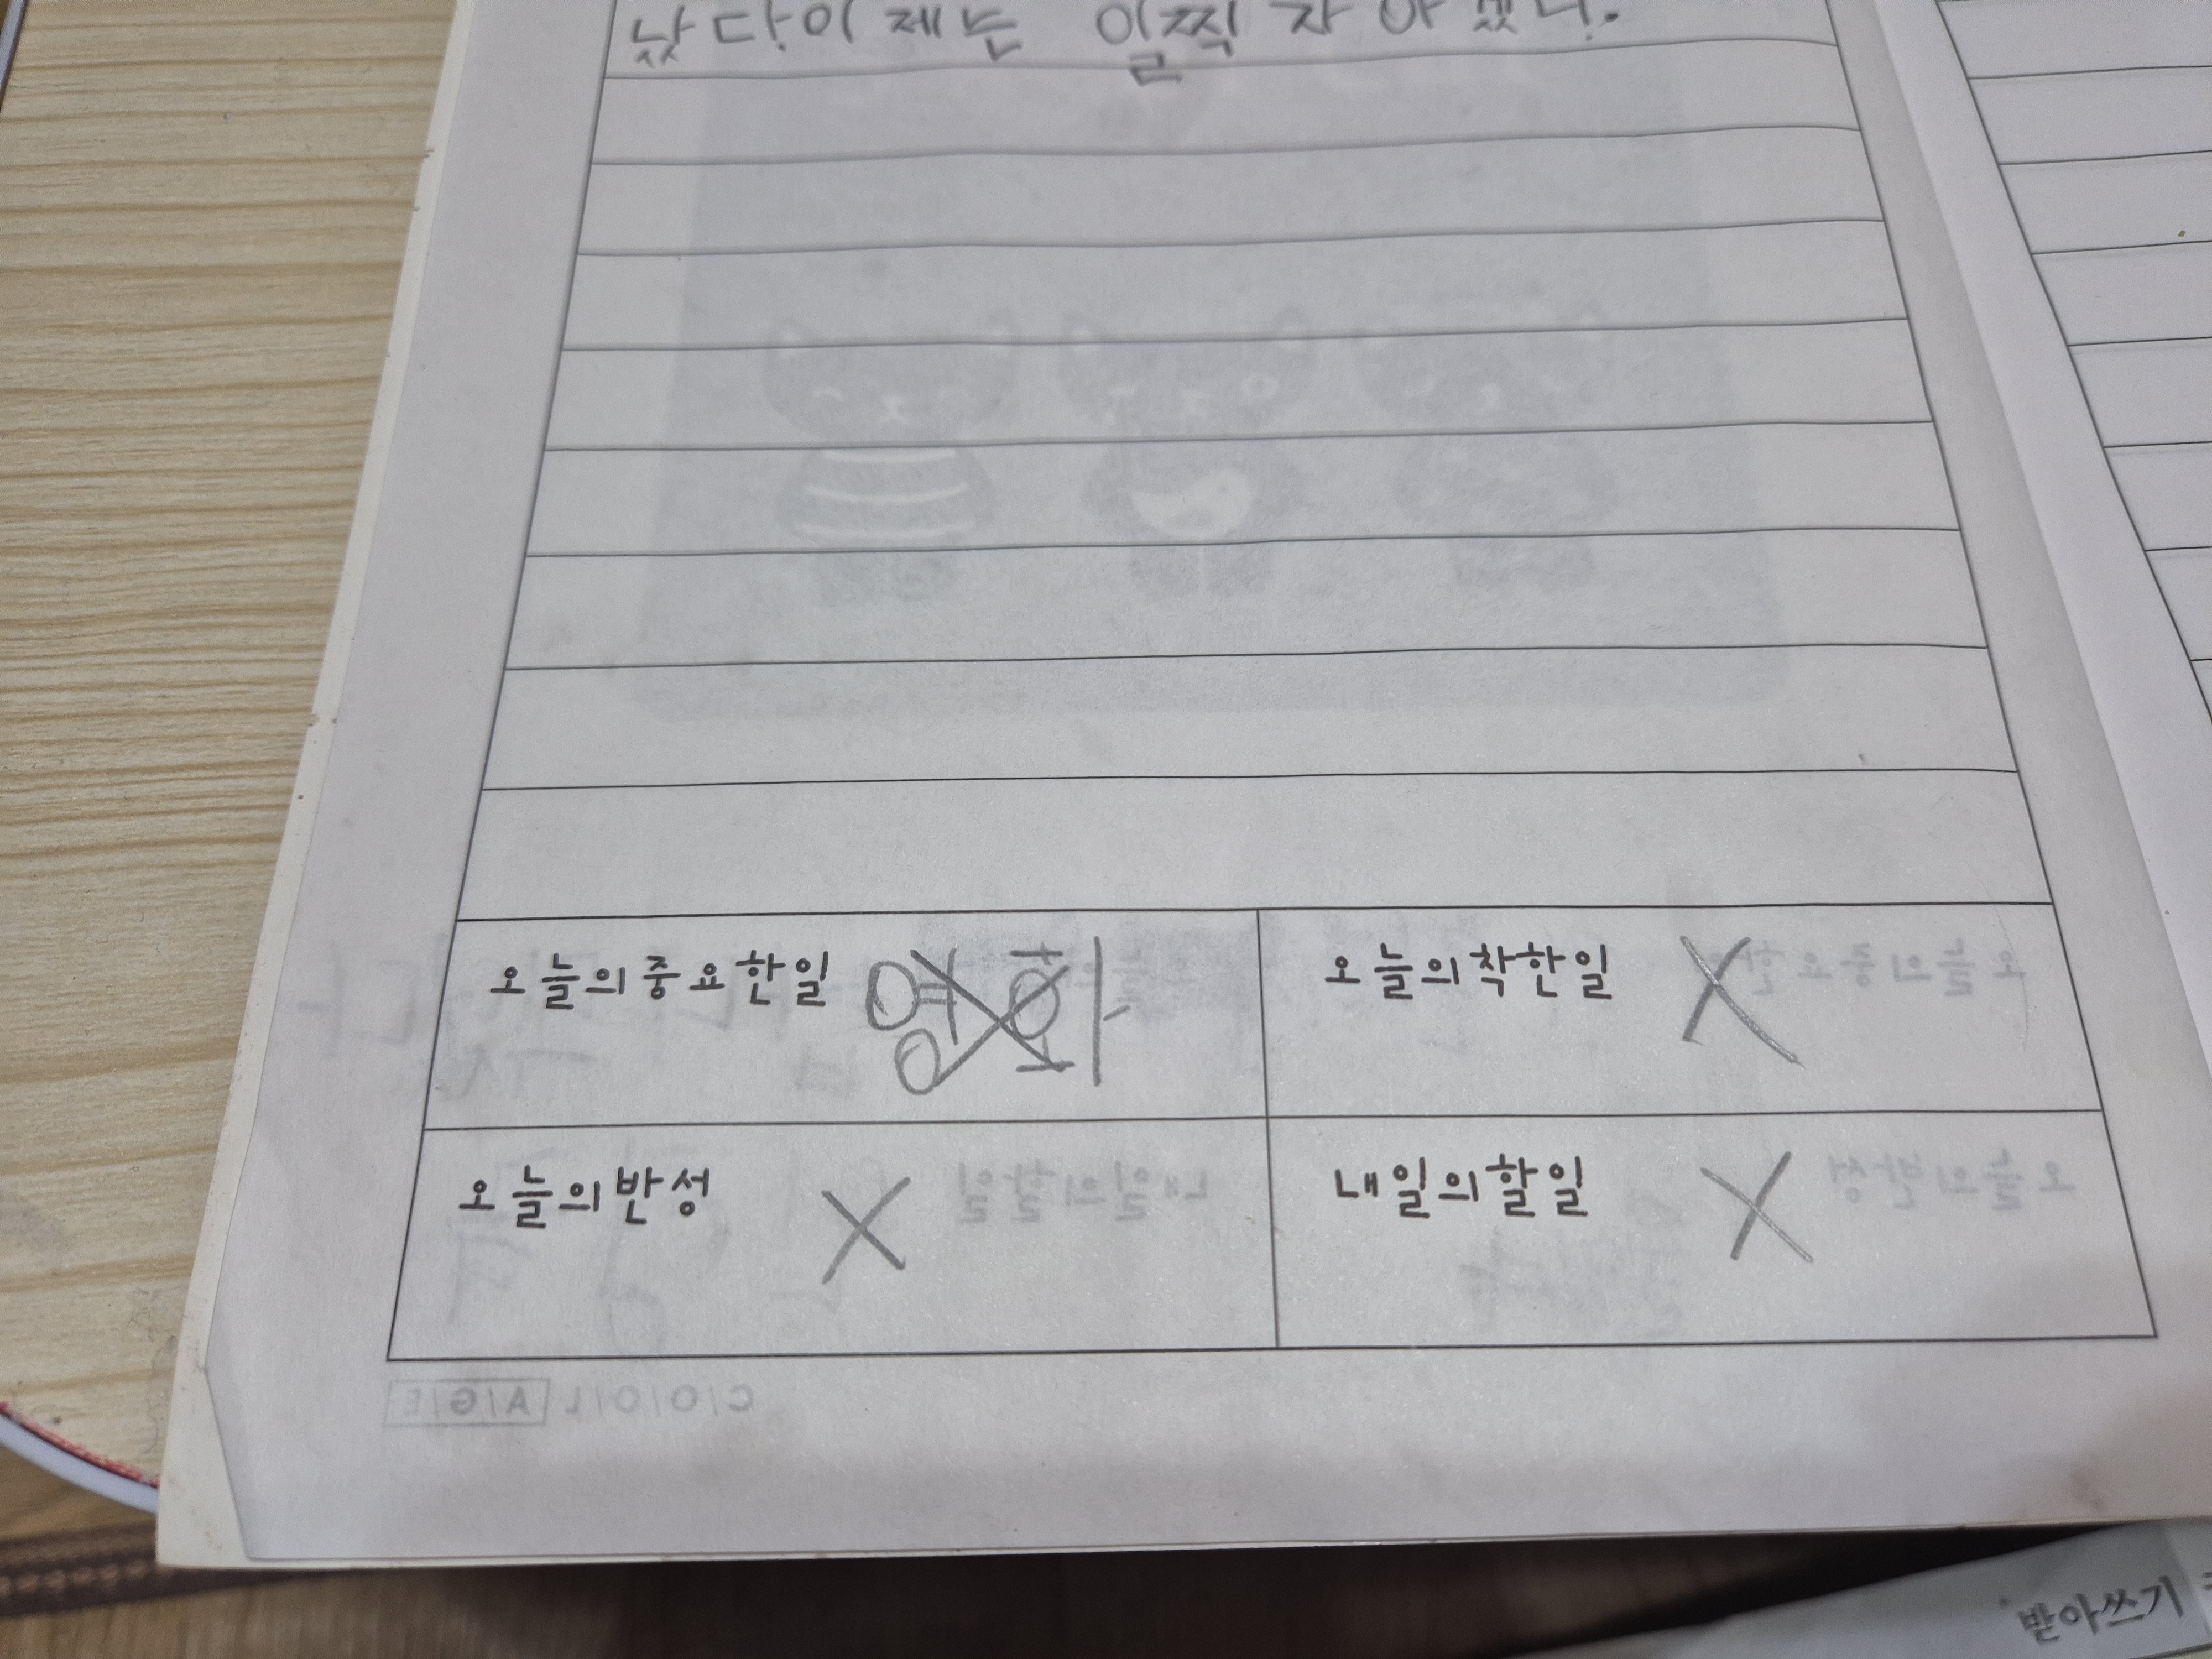 났다. 이제는 일찍 자야겠다.
오늘의중요한일
오늘의착한일 X
오늘의반성 X
내일의할일 X
COOLAGE
받아쓰기